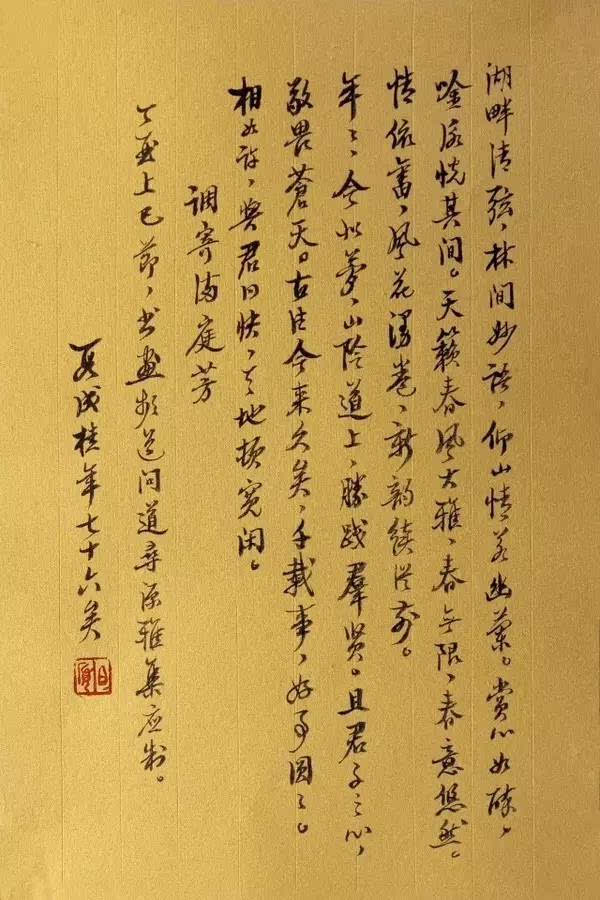 湖畔清弦，林间妙语，仰山情若幽蘭。赏心如醉，
唫恍其间。天籁春风大雅，春无限，春意悠然。
情依舊，风花漫卷，新韵续从前。
年〻，今似夢，山陰道上，勝践羣贤。且君子之心，
敬畏蒼天。古往今来久矣，千载事，好事圆〻。
相如许，與君同快，天地顿宽闲。
调寄满庭芳
丁酉上巳节，书画频道问道尋源雅集应制。
段成桂年七十六矣